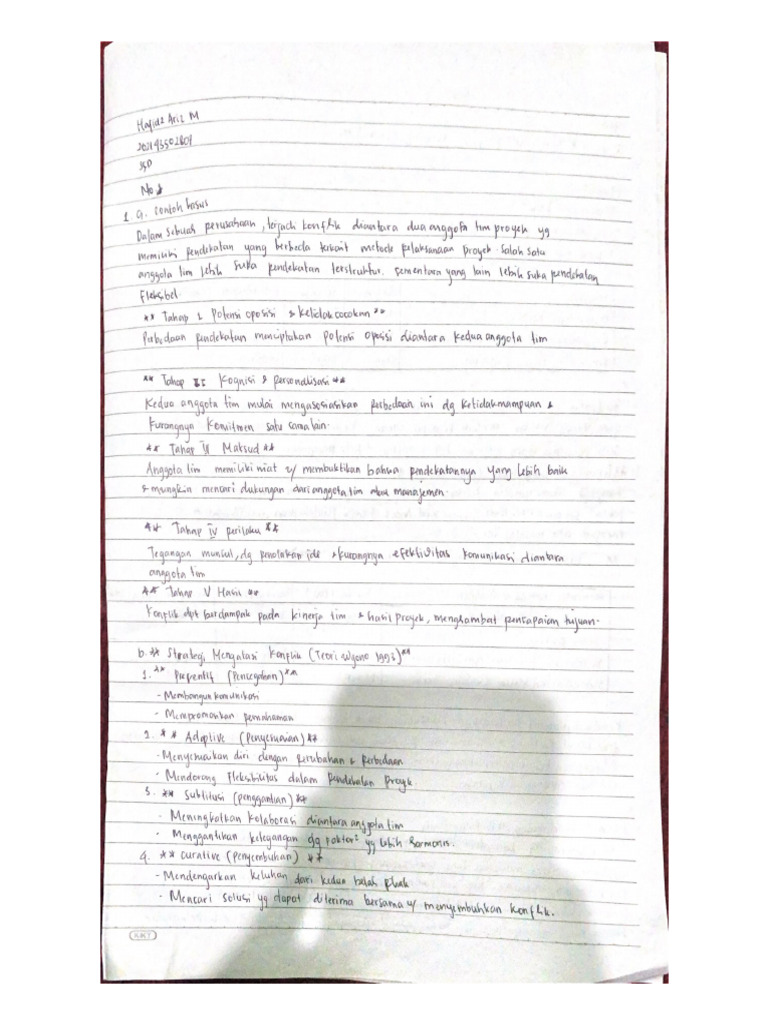 Hafidz Ariz M
202143502804
No 1
1 a. contoh kasus
Dalam sebuah perusahaan, terjadi konflik diantara dua anggota tim proyek yg
memiliki pendekatan yang berbeda terkait metode pelaksanaan proyek. Salah satu
anggota tim lebih suka pendekatan terstruktur. Sementara yang lain lebih suka pendekatan
fleksibel.
** Tahap 1 Potensi oposisi & ketidakcocokan **
Perbedaan pendekatan menciptakan potensi oposisi diantara kedua anggota tim
** Tahap II Kognisi & personalisasi **
Kedua anggota tim mulai mengasosiasikan perbedaan ini dg ketidakmampuan &
kurangnya komitmen satu sama lain.
** Tahap III Maksud **
Anggota tim memiliki niat u/ membuktikan bahwa pendekatannya yang lebih baik
& mungkin mencari dukungan dari anggota tim atau manajemen.
** Tahap IV perilaku **
Tegangan muncul, dg penolakan ide & kurangnya efektivitas komunikasi diantara
anggota tim
** Tahap V Hasil **
Konflik dpt berdampak pada kinerja tim & hasil proyek, menghambat pencapaian tujuan.
b. ** Strategi Mengatasi Konflik (Teori 1993) **
1. ** Preventif (Pencegahan) **
- Membangun komunikasi
- Mempromosikan pemahaman
2. ** Adaptive (Penyesuaian) **
- Menyesuaikan diri dengan perubahan & perbedaan
- Mendorong fleksibilitas dalam pendekatan proyek
3. ** Subtitusi (penggantian) **
- Meningkatkan kolaborasi diantara anggota tim
- Menggantikan ketegangan dg faktor² yg lebih harmonis.
4. ** Curative (Penyembuhan) **
- Mendengarkan keluhan dari kedua belah pihak
- Mencari solusi yg dapat diterima bersama u/ menyembuhkan konflik.